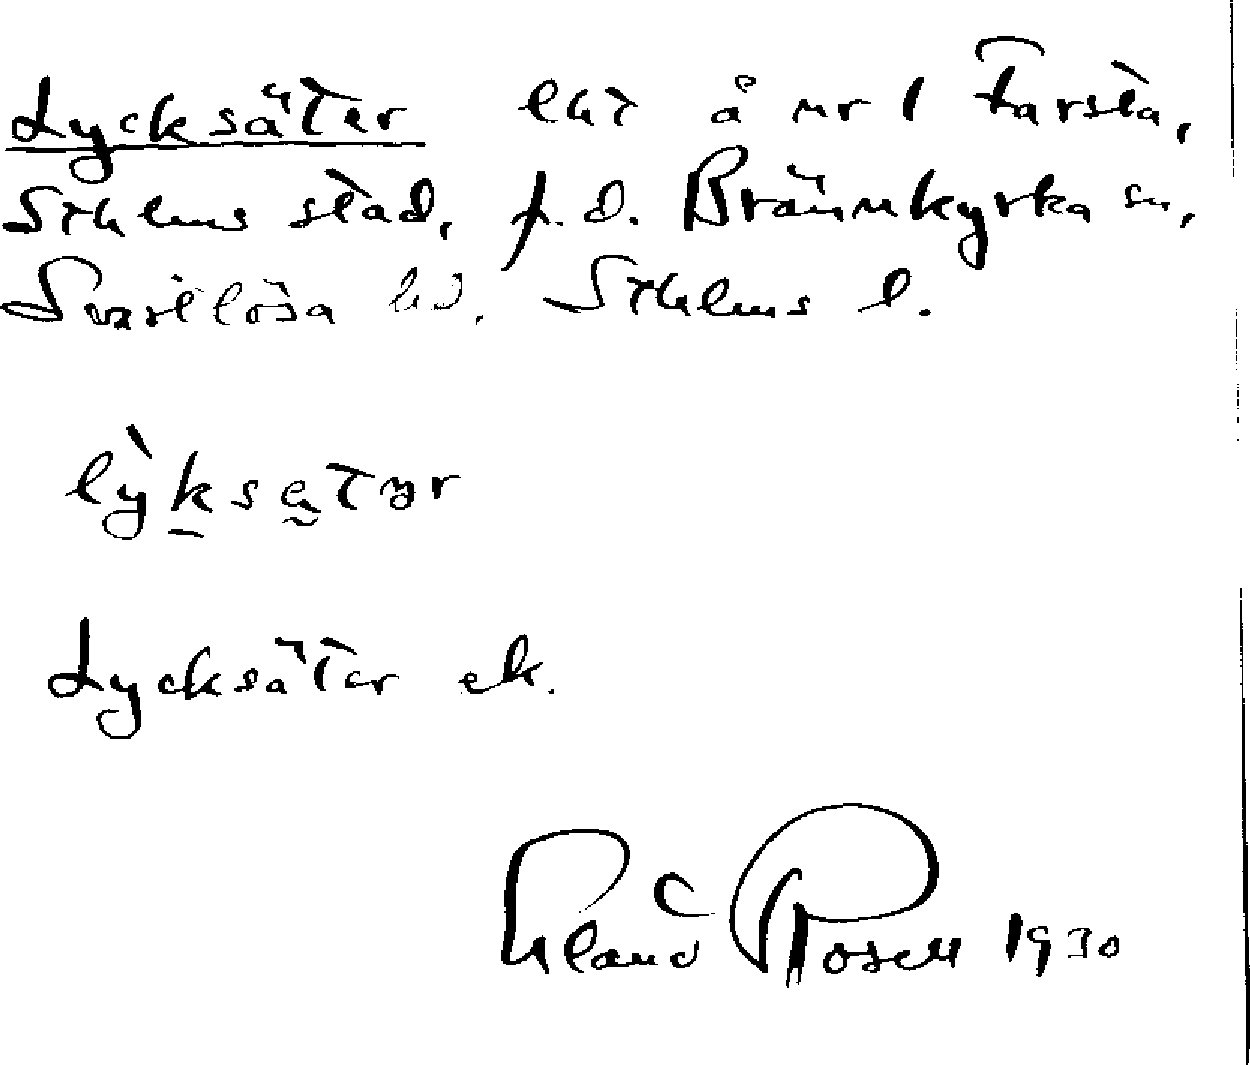 Lycksäter lht å nr 1 Farsta,
Sthlms stad, f.d. Brännkyrka sn,
Svartlösa hd, Sthlms l.
Lycksäter ek.
Erland Rosell 1930